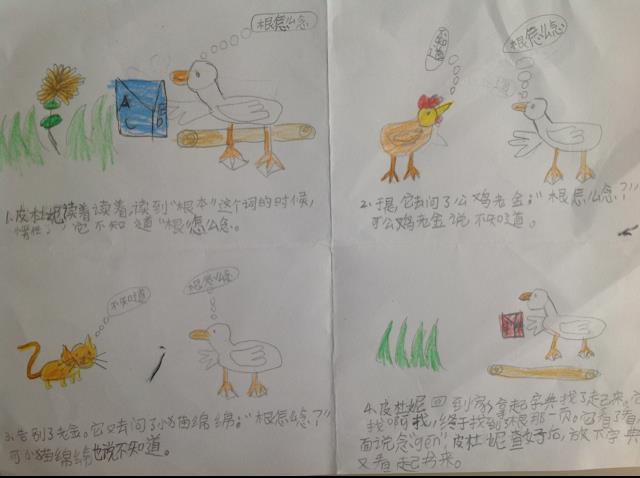 根怎么念
A
C
1.皮杜妮读着读着读到“根本”这个词的时候，
它不知道“根”怎么念。
不知道
根怎么念
2.于是它去问了公鸡老金：“根怎么念？”
可公鸡老金说不知道。
不知道
根怎么念
3.告别了老金。它又去问了小猫绵绵：“根怎么念？”
可小猫绵绵也说不知道。
4.皮杜妮回到家拿起字典找了起来，它
找啊找，终于找到了根那一页。它看了看，
面说念“gēn”皮杜妮查好后，放下字典
又看起书来。